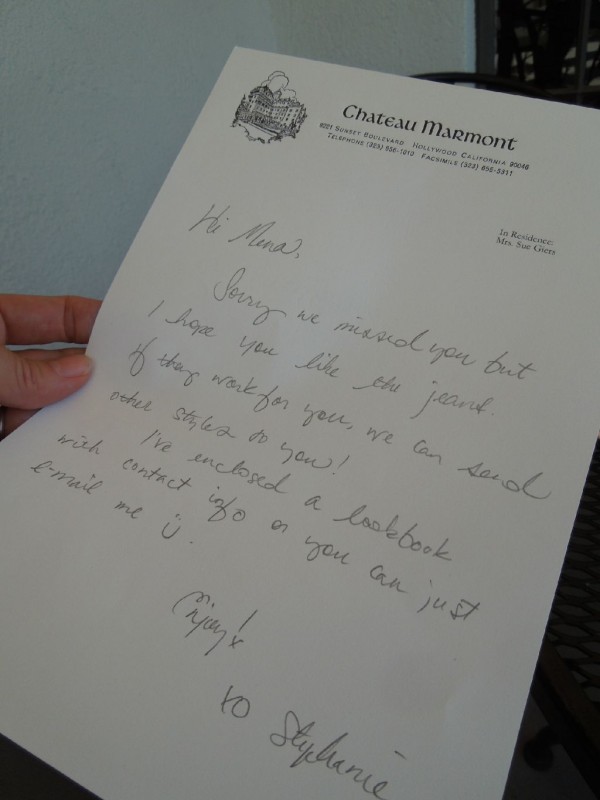 Chateau Marmont
8221 Sunset Boulevard Hollywood California 90046
Telephone (323) 656-1010 Facsimile (323) 655-5311
In Residence:
Mrs. Sue Giers
Hi Mena,
Sorry we missed you but
I hope you like the jeans.
If they work for you, we can send
other styles to you!
I've enclosed a lookbook
with contact info or you can just
e-mail me ü.
Enjoy!
xo Stephanie